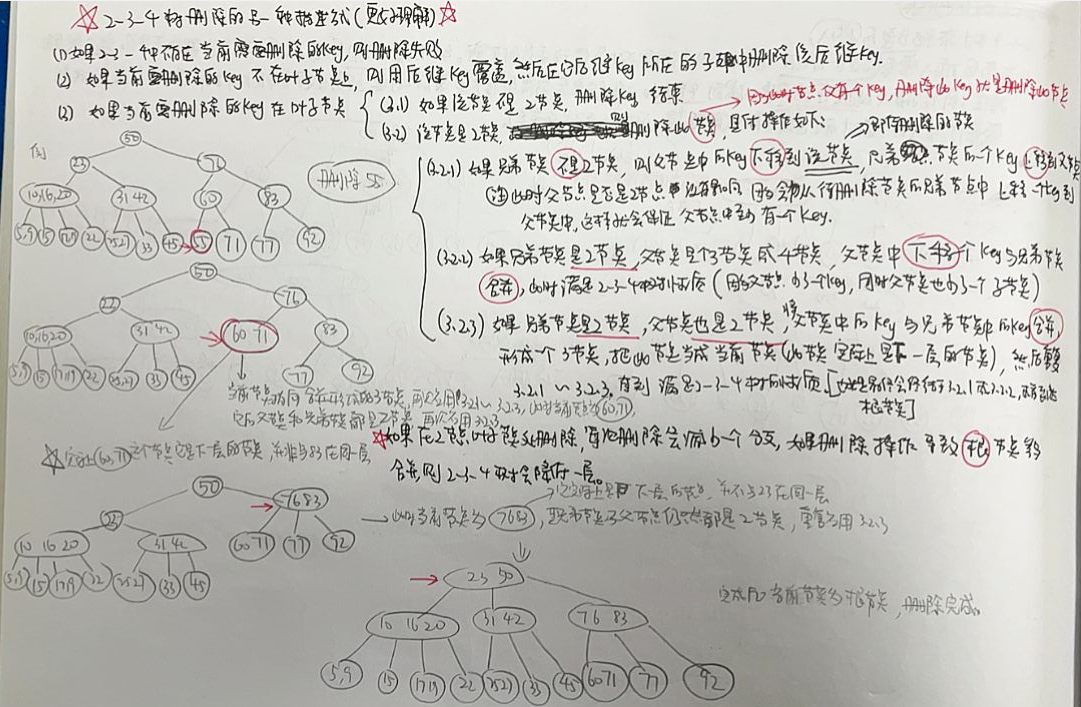 2-3-4树删除的另一种描述形式(更好理解)
(1) 如果2-3-4树中不存在当前需要删除的key,则删除失败
(2) 如果当前要删除的key不在叶子节点上,则用后继key覆盖,然后在它后继key所在的子树中删除该后继key.
(3) 如果当前要删除的key在叶子节点
(3.1) 如果该节点不是2节点,删除key,结束
因为此时节点仅有个key,删除此key就是删除此节点
(3.2) 该节点是2节点,则删除此节点,具体操作如下:
即待删除的节点
例
删除55
(3.2.1) 如果兄弟节点不是2节点,则父节点中的key下移到该节点,兄弟节点一个key上移到父节点
此时父节点是否是2节点 因为会从待删除节点的兄弟节点中上移一个key到
父节点中,这样就会保证父节点中至少有一个key.
(3.2.2) 如果兄弟节点是2节点,父节点是个3节点或4节点,父节点中下移一个key与兄弟节点
合并,此时满足2-3-4树的性质(因为父节点少了一个key,同时父节点也少了一个子节点)
(3.2.3) 如果兄弟节点是2节点,父节点也是2节点,将父节点中的key与兄弟节点中的key合并,
形成一个3节点,把此节点当成当前节点(此节点实际上是下一层的节点),然后重复
3.2.1~3.2.3,直到满足2-3-4树的性质.
根节点]
当前节点
它后父节点和兄弟节点都是2节点,再次应用3.2.3
如果在2节点叶子节点处删除,每次删除会减少一个分支,如果删除操作导致根节点参与
合并,则2-3-4树会降低一层。
(60,71)这个节点它是下一层的节点,并非与83在同一层
它实际上是下一层的节点,并不与23在同一层
此时当前节点为(76 83),兄弟节点和父节点仍然都是2节点,重复应用3.2.3
完成后当前节点为根节点,删除完成。
50
23 76
10,16,20 31 42 60 83
5,9 15 17,19 22 25 27 33 45 55 71 77 92
50
23 76
10 16 20 31 42 60 71 83
5,9 15 17,19 22 25,27 33 45 77 92
50
23 76 83
10 16 20 31 42 60 71 77 92
5,9 15 17,19 22 25 27 33 45
23 50
10 16 20 31 42 76 83
5,9 15 17 19 22 25 27 33 45 60 71 77 92